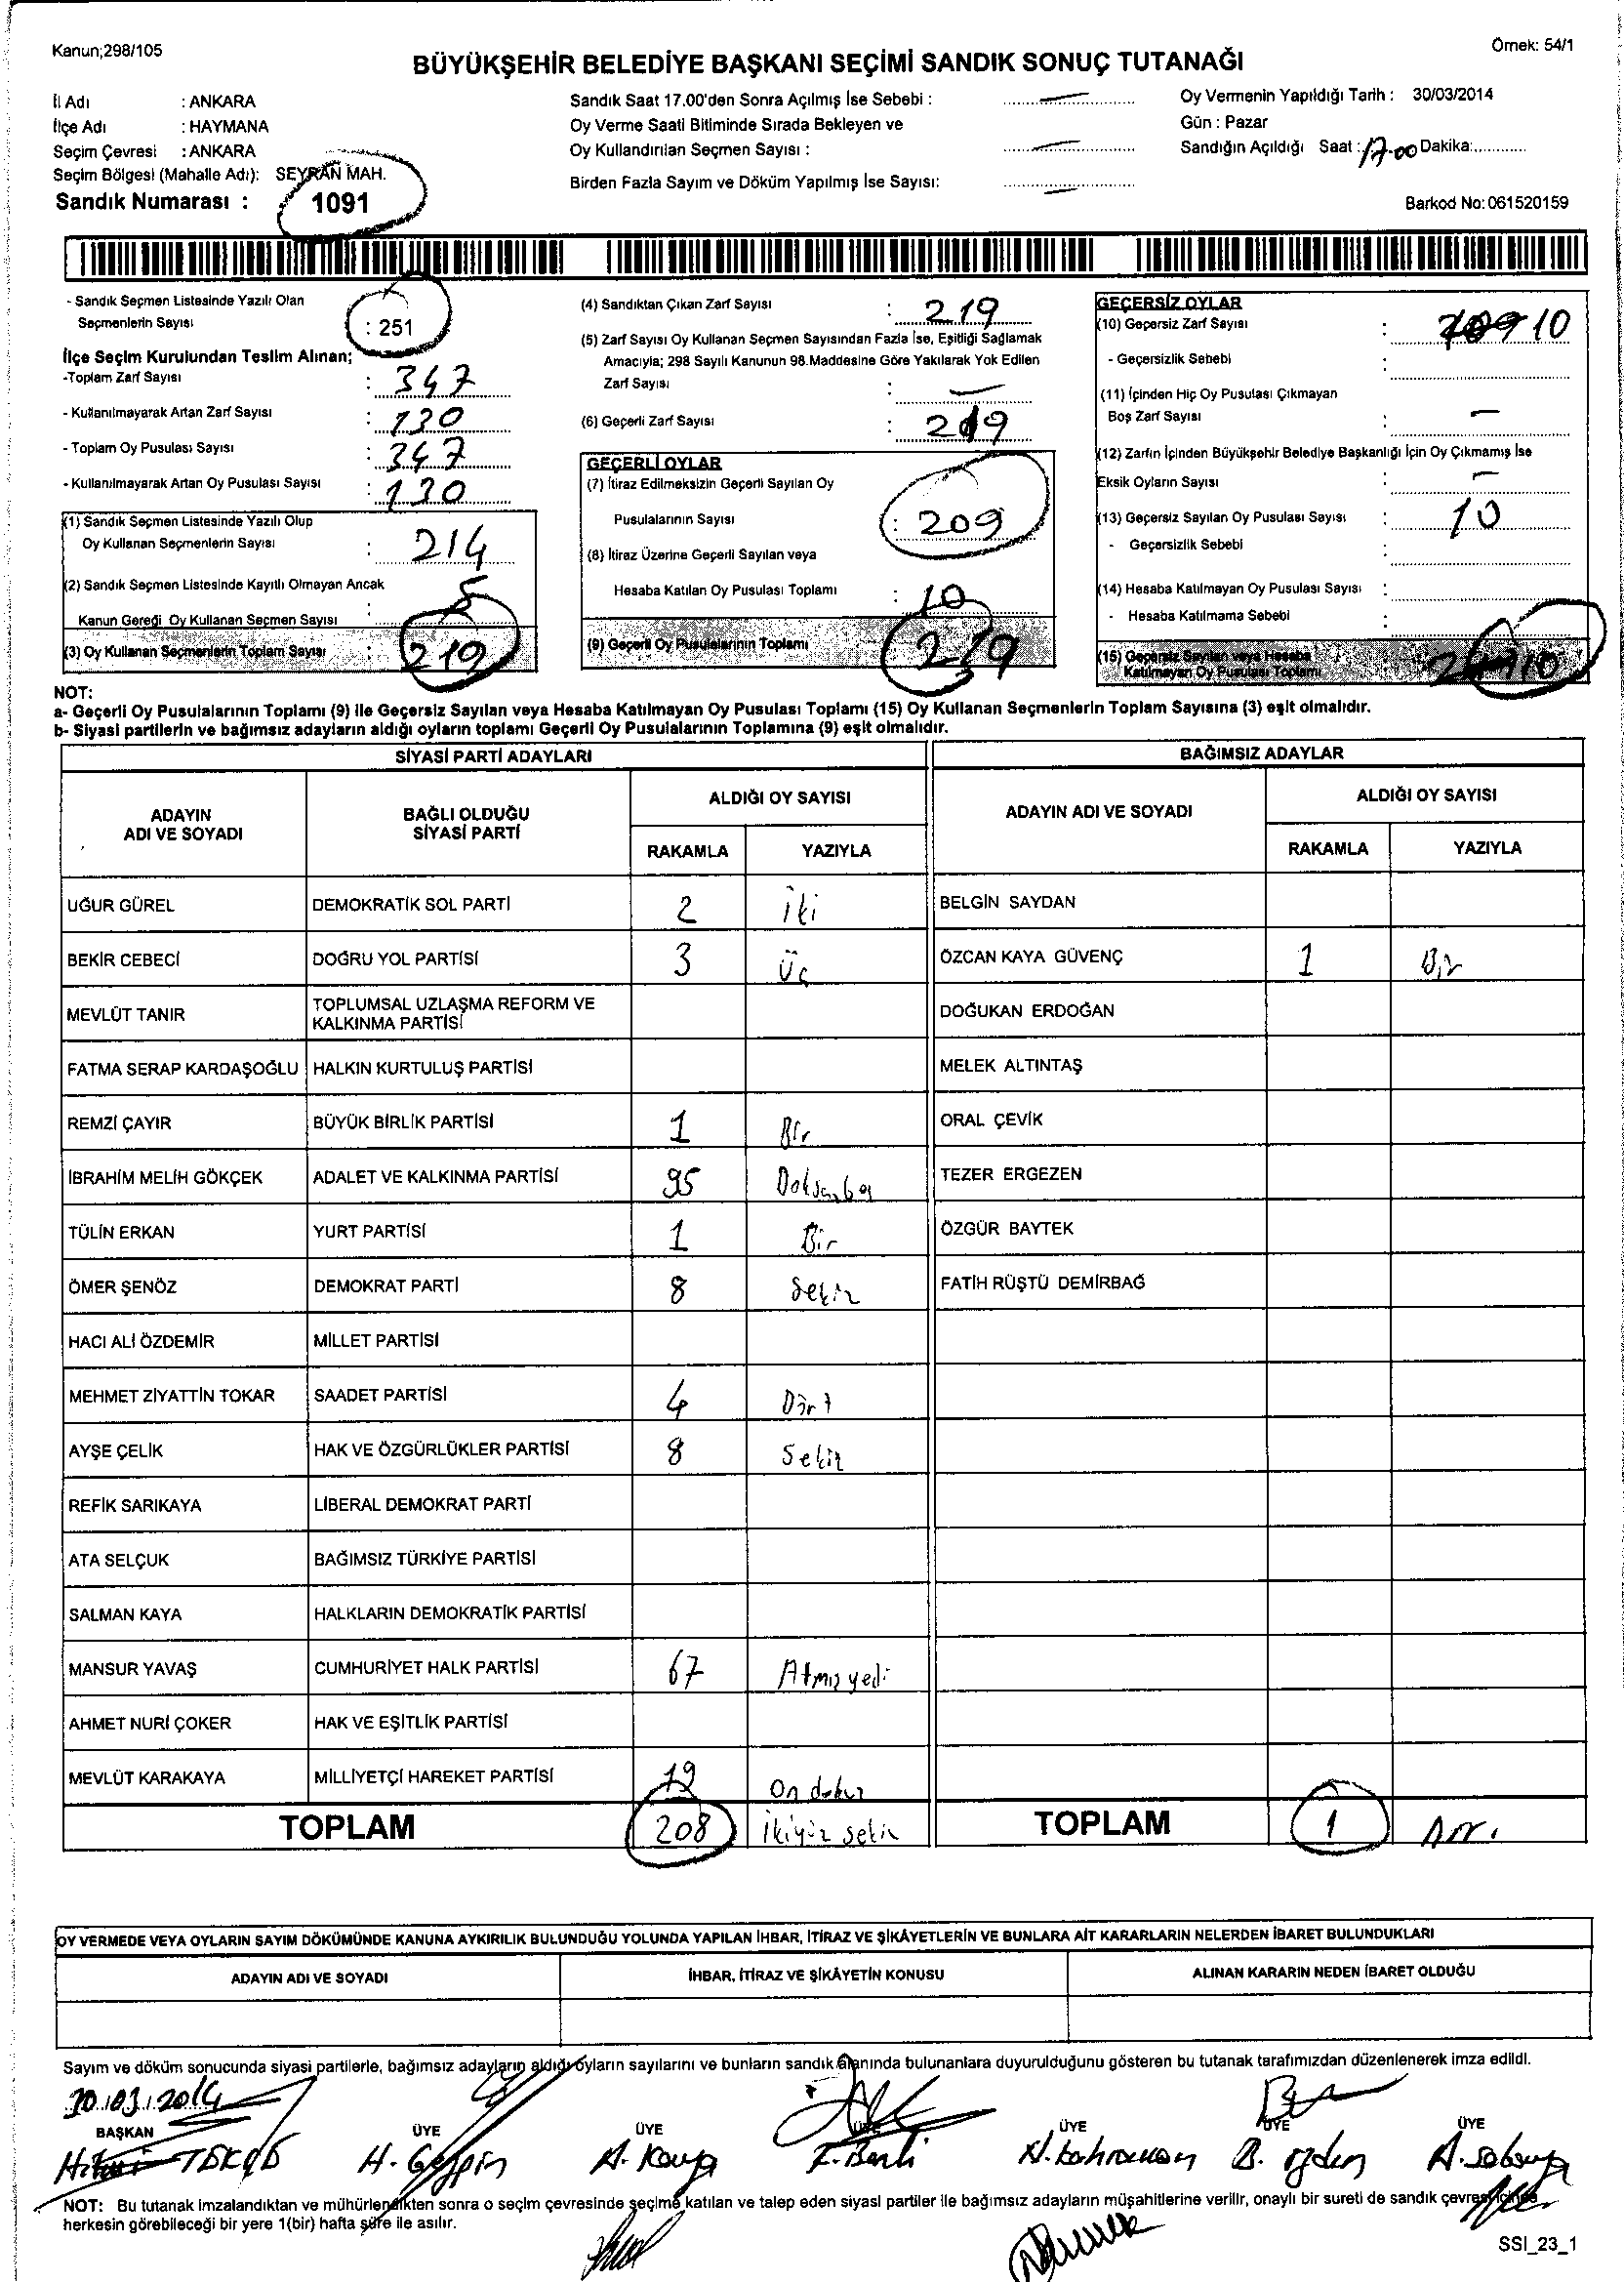 Kanun;298/105
Örnek: 54/1
BÜYÜKŞEHİR BELEDİYE BAŞKANI SEÇİMİ SANDIK SONUÇ TUTANAĞI
İl Adı : ANKARA
İlçe Adı : HAYMANA
Seçim Çevresi : ANKARA
Seçim Bölgesi (Mahalle Adı): SEYRAN MAH.
Sandık Numarası : 1091
Sandık Saat 17.00'den Sonra Açılmış İse Sebebi :
Oy Verme Saati Bitiminde Sırada Bekleyen ve
Oy Kullandırılan Seçmen Sayısı :
Birden Fazla Sayım ve Döküm Yapılmış İse Sayısı:
Oy Vermenin Yapıldığı Tarih : 30/03/2014
Gün : Pazar
Sandığın Açıldığı Saat : 17.00 Dakika:
Barkod No: 061520159
- Sandık Seçmen Listesinde Yazılı Olan
Seçmenlerin Sayısı : 251
İlçe Seçim Kurulundan Teslim Alınan;
-Toplam Zarf Sayısı : 347
- Kullanılmayarak Artan Zarf Sayısı : 130
- Toplam Oy Pusulası Sayısı : 347
- Kullanılmayarak Artan Oy Pusulası Sayısı : 130
(1) Sandık Seçmen Listesinde Yazılı Olup
Oy Kullanan Seçmenlerin Sayısı : 214
(2) Sandık Seçmen Listesinde Kayıtlı Olmayan Ancak
Kanun Gereği Oy Kullanan Seçmen Sayısı : 5
(3) Oy Kullanan Seçmenlerin Toplam Sayısı : 219
(4) Sandıktan Çıkan Zarf Sayısı : 219
(5) Zarf Sayısı Oy Kullanan Seçmen Sayısından Fazla İse, Eşitliği Sağlamak
Amacıyla; 298 Sayılı Kanunun 98.Maddesine Göre Yakılarak Yok Edilen
Zarf Sayısı : -
(6) Geçerli Zarf Sayısı : 219
GEÇERLİ OYLAR
(7) İtiraz Edilmeksizin Geçerli Sayılan Oy
Pusulalarının Sayısı : 209
(8) İtiraz Üzerine Geçerli Sayılan veya
Hesaba Katılan Oy Pusulası Toplamı : 10
(9) Geçerli Oy Pusulalarının Toplamı : 219
GEÇERSİZ OYLAR
(10) Geçersiz Zarf Sayısı : 10
- Geçersizlik Sebebi :
(11) İçinden Hiç Oy Pusulası Çıkmayan
Boş Zarf Sayısı : -
(12) Zarfın İçinden Büyükşehir Belediye Başkanlığı İçin Oy Çıkmamış İse
Eksik Oyların Sayısı : -
(13) Geçersiz Sayılan Oy Pusulası Sayısı : 10
- Geçersizlik Sebebi :
(14) Hesaba Katılmayan Oy Pusulası Sayısı :
- Hesaba Katılmama Sebebi :
(15) Geçersiz Sayılan veya Hesaba
Katılmayan Oy Pusulası Toplamı 10
NOT:
a- Geçerli Oy Pusulalarının Toplamı (9) ile Geçersiz Sayılan veya Hesaba Katılmayan Oy Pusulası Toplamı (15) Oy Kullanan Seçmenlerin Toplam Sayısına (3) eşit olmalıdır.
b- Siyasi partilerin ve bağımsız adayların aldığı oyların toplamı Geçerli Oy Pusulalarının Toplamına (9) eşit olmalıdır.
SİYASİ PARTİ ADAYLARI
ADAYIN ADI VE SOYADI
BAĞLI OLDUĞU SİYASİ PARTİ
ALDIĞI OY SAYISI
RAKAMLA YAZIYLA
UĞUR GÜREL DEMOKRATİK SOL PARTİ 2 İki
BEKİR CEBECİ DOĞRU YOL PARTİSİ 3 Üç
MEVLÜT TANIR TOPLUMSAL UZLAŞMA REFORM VE KALKINMA PARTİSİ
FATMA SERAP KARDAŞOĞLU HALKIN KURTULUŞ PARTİSİ
REMZİ ÇAYIR BÜYÜK BİRLİK PARTİSİ 1 Bir
İBRAHİM MELİH GÖKÇEK ADALET VE KALKINMA PARTİSİ 95 Doksanbeş
TÜLİN ERKAN YURT PARTİSİ 1 Bir
ÖMER ŞENÖZ DEMOKRAT PARTİ 8 Sekiz
HACI ALİ ÖZDEMİR MİLLET PARTİSİ
MEHMET ZİYATTİN TOKAR SAADET PARTİSİ 4 Dört
AYŞE ÇELİK HAK VE ÖZGÜRLÜKLER PARTİSİ 8 Sekiz
REFİK SARIKAYA LİBERAL DEMOKRAT PARTİ
ATA SELÇUK BAĞIMSIZ TÜRKİYE PARTİSİ
SALMAN KAYA HALKLARIN DEMOKRATİK PARTİSİ
MANSUR YAVAŞ CUMHURİYET HALK PARTİSİ 67 Atmış yedi
AHMET NURİ ÇOKER HAK VE EŞİTLİK PARTİSİ
MEVLÜT KARAKAYA MİLLİYETÇİ HAREKET PARTİSİ 19 On dokuz
TOPLAM 208 İkiyüz sekiz
BAĞIMSIZ ADAYLAR
ADAYIN ADI VE SOYADI
ALDIĞI OY SAYISI
RAKAMLA YAZIYLA
BELGİN SAYDAN
ÖZCAN KAYA GÜVENÇ 1 Bir
DOĞUKAN ERDOĞAN
MELEK ALTINTAŞ
ORAL ÇEVİK
TEZER ERGEZEN
ÖZGÜR BAYTEK
FATİH RÜŞTÜ DEMİRBAĞ
TOPLAM 1
OY VERMEDE VEYA OYLARIN SAYIM DÖKÜMÜNDE KANUNA AYKIRILIK BULUNDUĞU YOLUNDA YAPILAN İHBAR, İTİRAZ VE ŞİKÂYETLERİN VE BUNLARA AİT KARARLARIN NELERDEN İBARET BULUNDUKLARI
ADAYIN ADI VE SOYADI İHBAR, İTİRAZ VE ŞİKÂYETİN KONUSU ALINAN KARARIN NEDEN İBARET OLDUĞU
Sayım ve döküm sonucunda siyasi partilerle, bağımsız adayların aldığı oyların sayılarını ve bunların sandık alanında bulunanlara duyurulduğunu gösteren bu tutanak tarafımızdan düzenlenerek imza edildi.
30.03.2014
BAŞKAN ÜYE ÜYE ÜYE ÜYE ÜYE ÜYE
A. Kaya B. Özden
NOT: Bu tutanak imzalandıktan ve mühürlendikten sonra o seçim çevresinde seçime katılan ve talep eden siyasi partiler ile bağımsız adayların müşahitlerine verilir, onaylı bir sureti de sandık çevresi içinde
herkesin görebileceği bir yere 1(bir) hafta süre ile asılır.
SSI_23_1